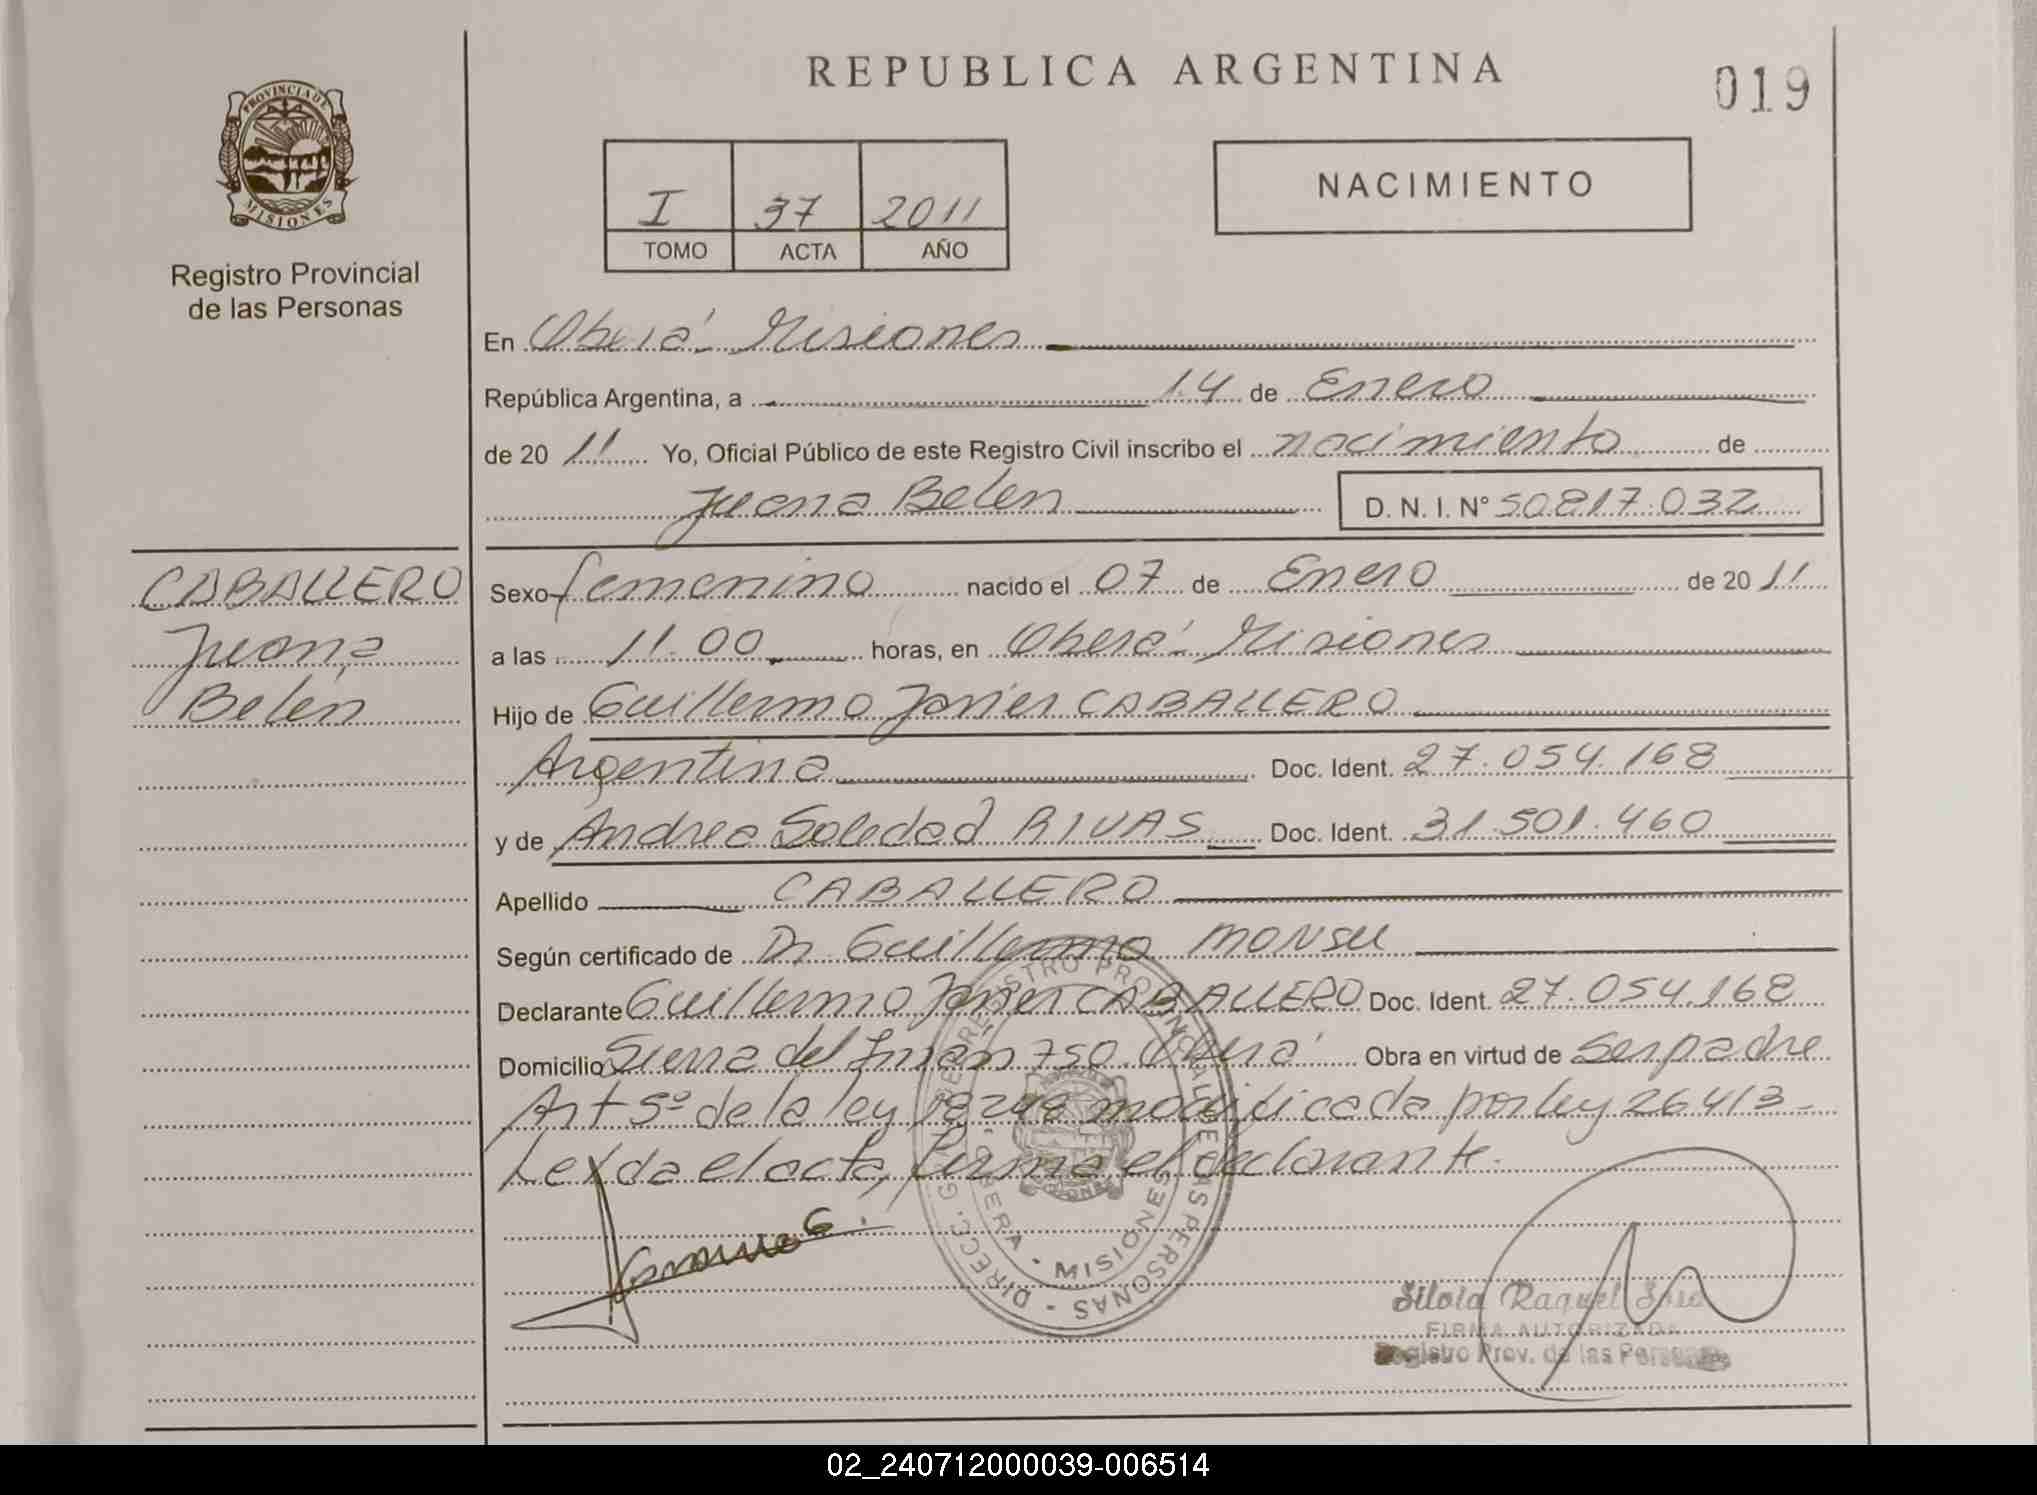 REPUBLICA ARGENTINA
019
PROVINCIA DE
MISIONES
Registro Provincial
de las Personas
I 37 2011
TOMO ACTA AÑO
NACIMIENTO
En Oberá - Misiones
República Argentina, a 14 de Enero
de 20 11 Yo, Oficial Público de este Registro Civil inscribo el nacimiento de
Juana Belén D. N. I. Nº 50.817.032
CABALLERO
Juana
Belén
Sexo femenino nacido el 07 de Enero de 20 11
a las 11.00 horas, en Oberá - Misiones
Hijo de Guillermo Javier CABALLERO
Argentina Doc. Ident. 27.054.168
y de Andrea Soledad RIVAS Doc. Ident. 31.501.460
Apellido CABALLERO
Según certificado de Dr. Guillermo MONSU
Declarante Guillermo Javier CABALLERO Doc. Ident. 27.054.168
Domicilio Sierra del 750. Oberá Obra en virtud de Ser padre
Art 5º de la ley 18248 modificada por ley 26413 -
Leída el acta, firma el declarante.
DIRECC. GRAL. DE REGISTRO PROVINCIAL DE LAS PERSONAS
OBERA - MISIONES
Silvia Raquel
FIRMA AUTORIZADA
Registro Prov. de las Personas
02_240712000039-006514